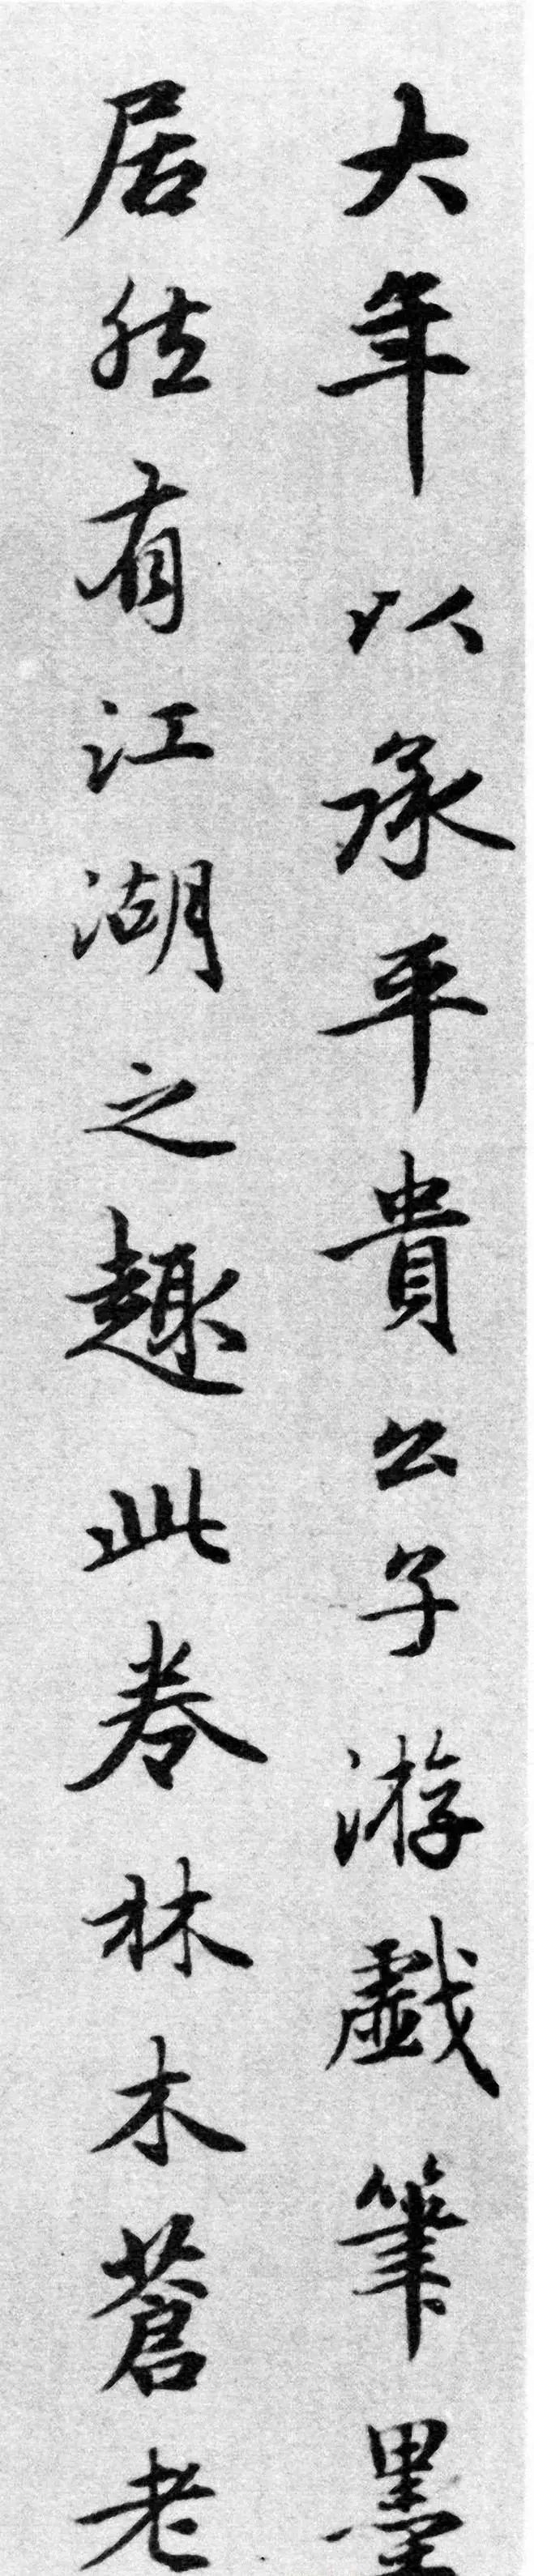 大年以承平貴公子游戲筆墨
居然有江湖之趣此卷林木蒼老